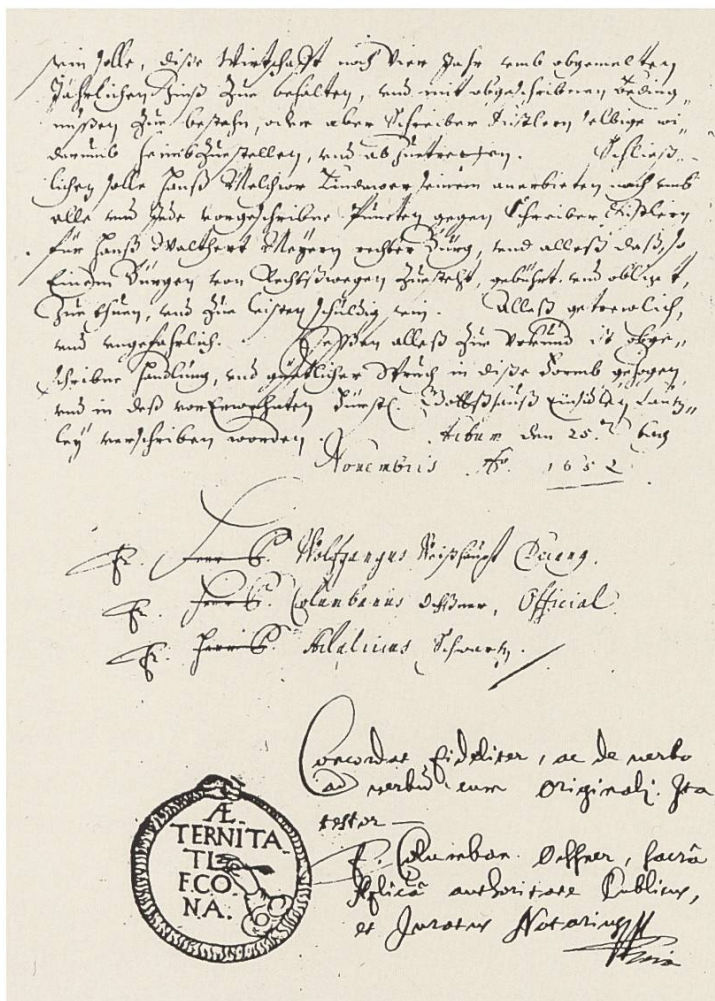 sein solle, diße Wirtschafft noch Vier Jahr umb obgemelten
Jährlichen Zinß Zue behalten, und mit obgeschribnen Beding„
nußen Zue bestehn, oder aber Schreiber Kistlern selbige wi„
derumb heimbZuestellen, und abZuetretten. Schließ„
lichen solle Hanß Melchior Lindauer seinem anerbieten nach umb
alle und Jede vorgeschribne Puncten gegen Schreiber Kistlern
für Hanß Walthert Meyern rechter Bürg, und alleß daß, so
Einem Bürgen von Rechtßwegen Zuesteht, gebührt und obligt,
Zue thuen, und Zue leisten schuldig sein. Alleß getrewlich,
und ungefahrlich. Deßen alleß Zue Vrkund ist obge„
schribne Handlung, und güetlicher Spruch in diße Formb gezogen,
und in deß vorErwehnten Fürstl. Gottßhauß Einsidlen Cantz„
ley verschriben worden. Actum den 25. tag
Novembris Ao. 1652
Fr. Wolfgangus Weißhaupt Decang.
Fr. Columbanus Ochßner, Official
Fr. Adalricus Schwartz.
Concordat fideliter, ac de verbo
ad verbũ cum Originali. Ita
testor
F. Columban. Ochsner, sacrâ
Aplicâ authoritate Publicus,
et Juratus Notarius
Æ.
TERNITA.
TI
F.CO.
NA.